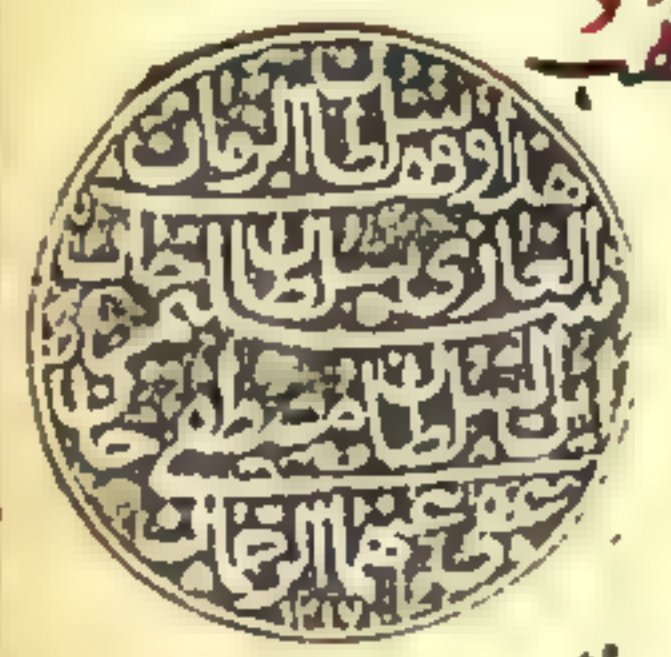 هذا وقف سلطان الزمان
الغازى سلطان سليم خان
بن السلطان مصطفى خان
عفى عنهما الرحمن
١٢١٧